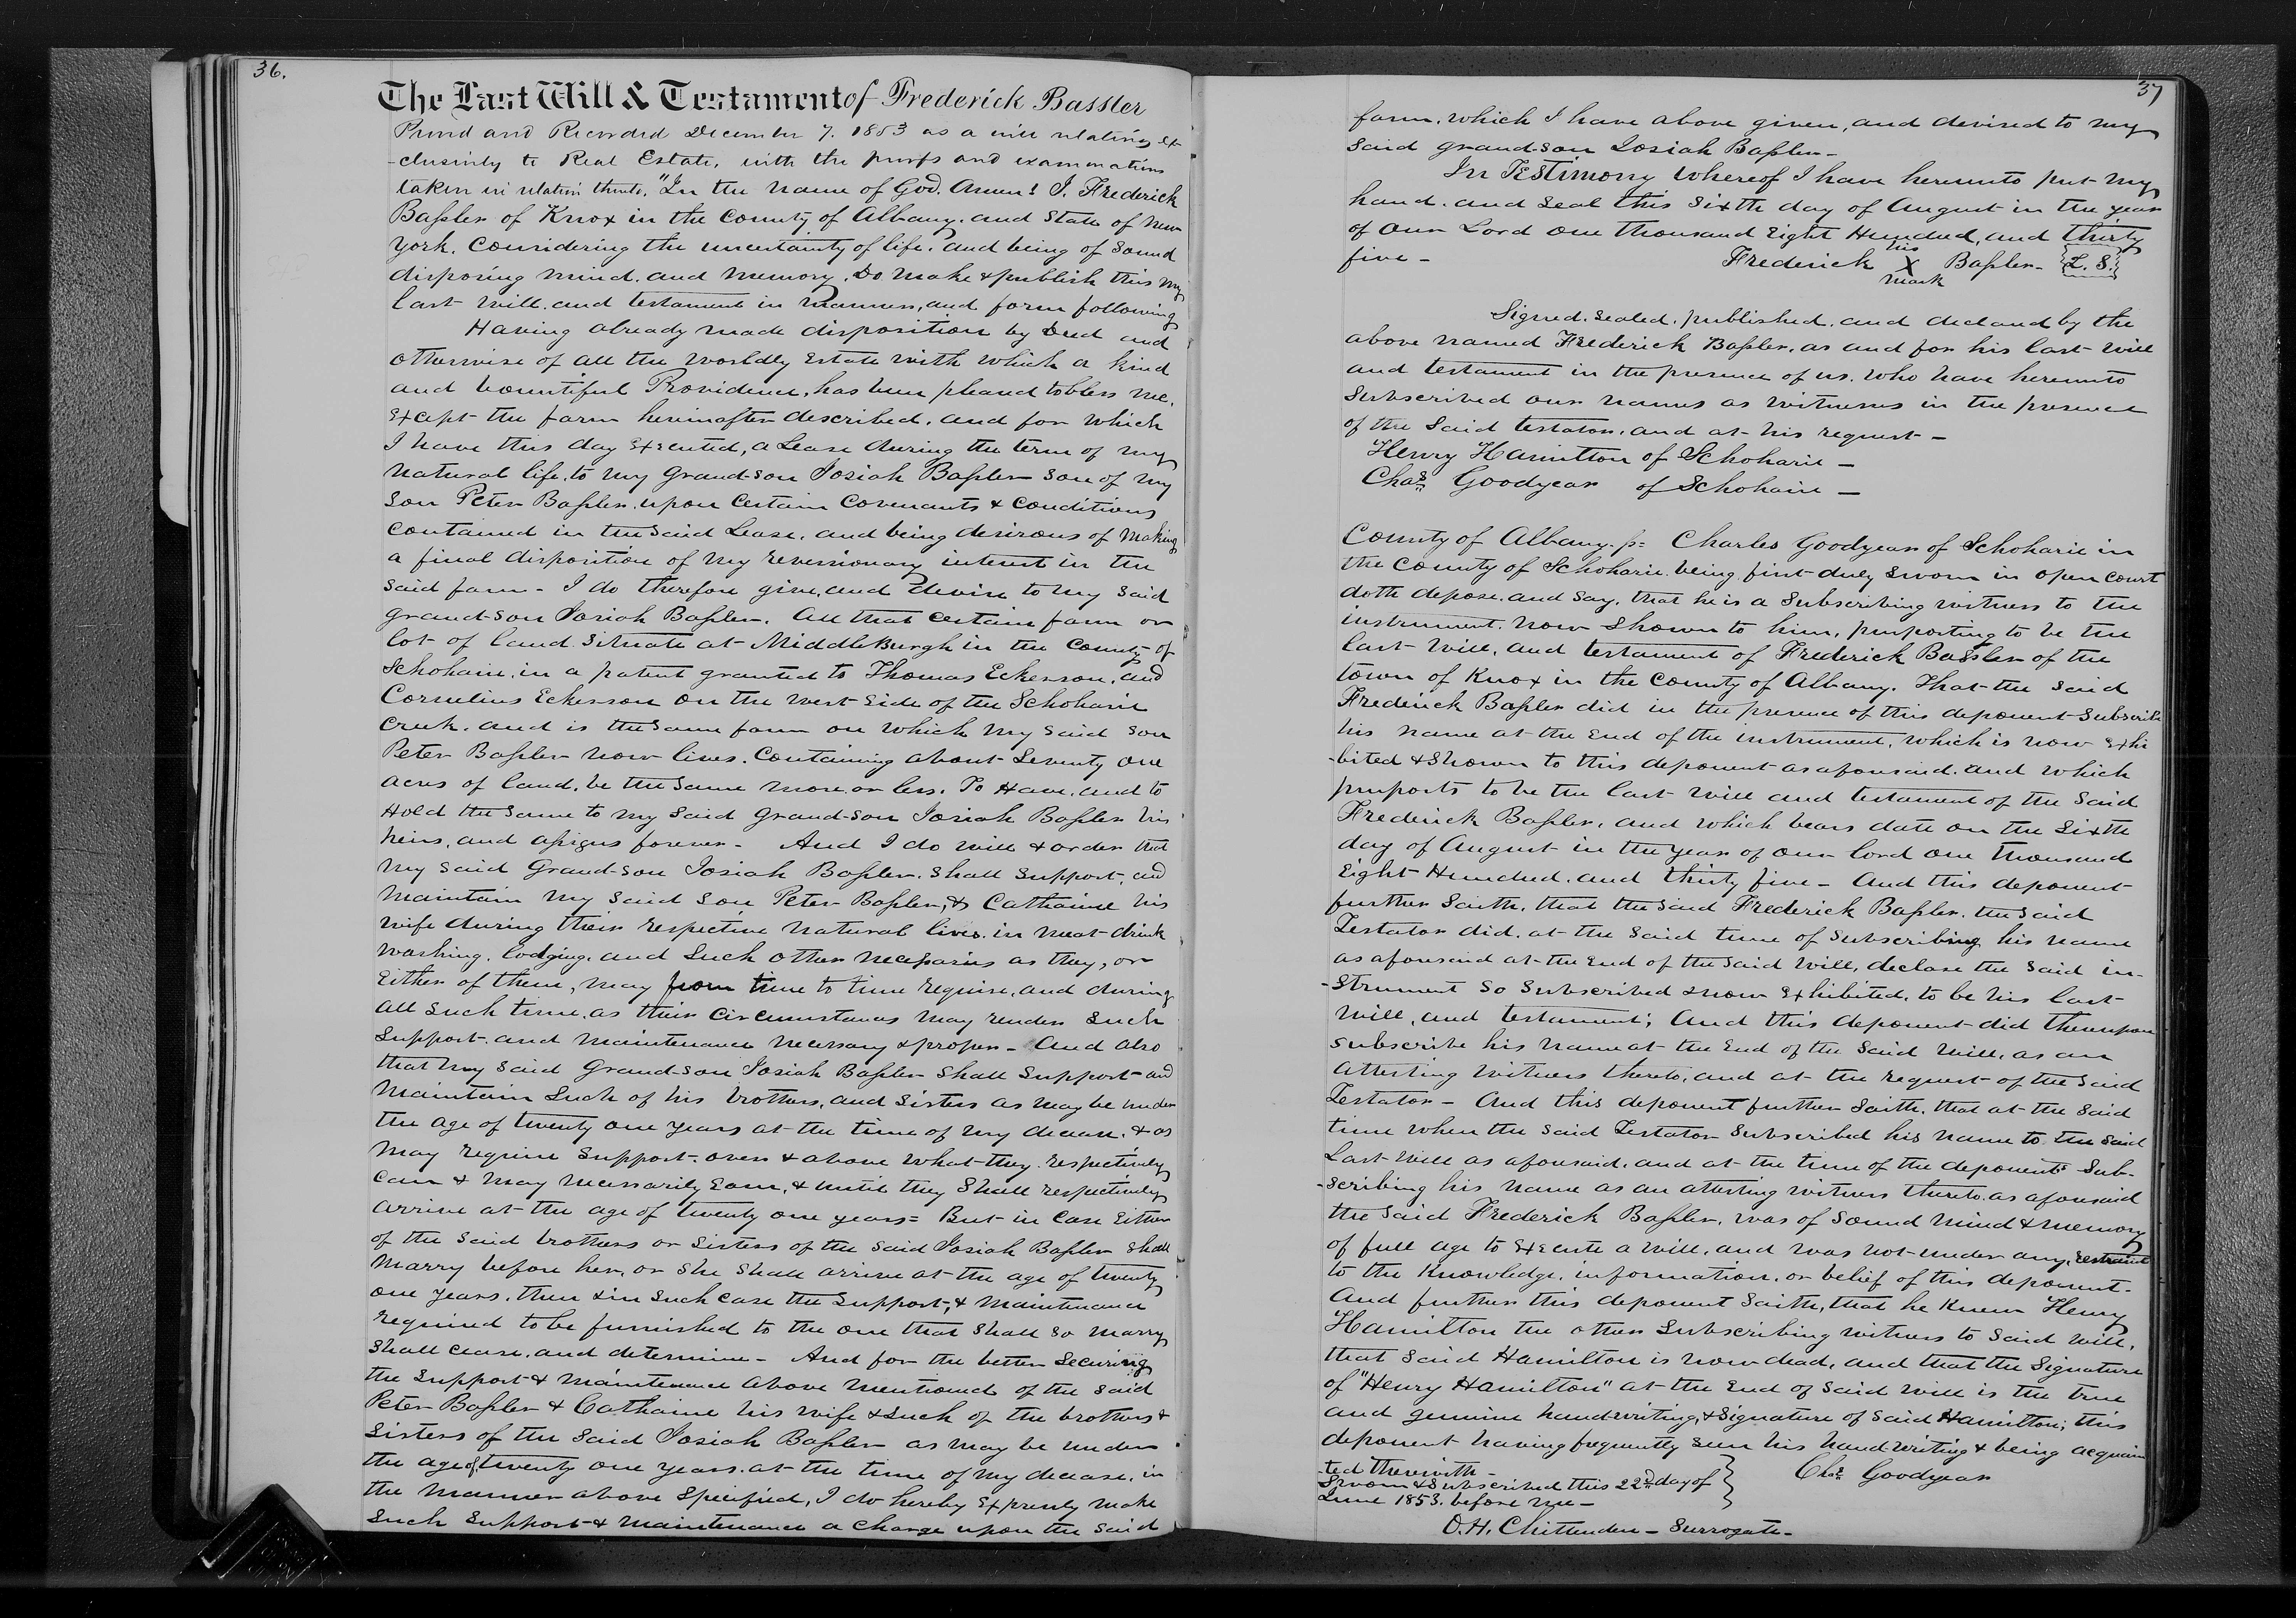 36.
The Last Will & Testament of Frederick Bassler
Proved and Recorded December 7. 1853 as a will relating ex-
-clusively to Real Estate, with the proofs and examinations
taken in relation thereto. "In the name of God. Amen! I. Frederick
Baſsler of Knox in the County of Albany. and State of New
York. Considering the uncertainty of life. and being of Sound
disposing mind. and memory. Do make & publish this my
last will. and testament in manner, and form following
Having already made disposition by Deed and
otherwise of all the worldly Estate with which a kind
and bountiful Providence, has been pleased to bless me,
Except the farm hereinafter described, and for which
I have this day Executed, a Lease during the term of my
natural life, to my Grand-son Josiah Baſsler son of my
son Peter Baſsler. upon Certain Covenants & Conditions
Contained in the Said Lease, and being desirous of making
a final disposition of my reversionary interest in the
said farm - I do therefore give, and devise to my Said
grand-son Josiah Baſsler. All that Certain farm or
lot of land Situate at MiddleBurgh in the County of
Schoharie, in a patent granted to Thomas Eckerson, and
Cornelius Eckerson on the west Side of the Schoharie
Creek. and is the Same farm on which my Said Son
Peter Baſsler now lives. Containing about Seventy one
acres of land, be the Same more or less. To Have, and to
Hold the Same to my Said Grand-son Josiah Baſsler his
heirs, and aſsigns forever - And I do will & order that
my said Grand-son Josiah Baſsler. Shall Support, and
maintain my Said Son Peter Baſsler, & Catharine his
wife during their respective natural lives. in meat drink
washing. lodging. and Such other neceſsaries as they, or
Either of them, may from time to time require, and during
all such time, as their Circumstances may render Such
Support. and maintenance necessary & proper - And also
that my said Grand-son Josiah Baſsler Shall Support and
Maintain Such of his brothers, and Sisters as may be under
the age of twenty one years at the time of my decease. & as
may require Support. over & above what they respectively
Can & may necessarily Earn, & until they Shall respectively
arrive at the age of twenty one years = But in Case Either
of the Said brothers or Sisters of the Said Josiah Baſsler Shall
marry before her, or She Shall arrive at the age of twenty
one years. then & in Such Case the Support, & Maintenance
required to be furnished to the one that Shall So marry
Shall cease, and determine - And for the better Securing
the Support & Maintenance above mentioned of the Said
Peter Baſsler & Catharine his wife & Such of the brothers &
Sisters of the Said Josiah Baſsler as may be under
the age of twenty one years. at the time of my decease, in
the manner above Specified, I do hereby Expressly make
Such Support & Maintenance a Charge upon the Said
37
farm. which I have above given, and devised to my
said grand-son Josiah Baſsler -
In Testimony Whereof I have hereunto put my
hand. and Seal this Sixth day of August in the year
of our Lord one thousand Eight Hundred, and thirty
five - Frederick his X mark Baſsler - L. S.
Signed. Sealed. published. and declared by the
above named Frederick Baſsler, as and for his last will
and testament in the presence of us. who have hereunto
Subscribed our names as witnesses in the presence
of the Said testator. and at his request -
Henry Hamilton of Schoharie -
Chas Goodyear of Schoharie -
County of Albany. ss = Charles Goodyear of Schoharie in
the County of Schoharie. being first duly Sworn in open Court
doth depose. and Say, that he is a Subscribing witness to the
instrument. now Shown to him, purporting to be the
last will, and testament of Frederick Baſsler of the
town of Knox in the County of Albany. That the Said
Frederick Baſsler did in the presence of this deponent Subscribe
his name at the End of the instrument, which is now Exhi
-bited & Shown to this deponent as aforesaid. and which
purports to be the last will and testament of the Said
Frederick Baſsler. and which bears date on the Sixth
day of August in the year of our lord one thousand
Eight Hundred. and thirty five - And this deponent
further Saith, that the Said Frederick Baſsler. the Said
Testator did. at the Said time of Subscribing his name
as aforesaid at the End of the Said Will, declare the Said in-
-Strument So Subscribed & now Exhibited, to be his last
Will, and testament; And this deponent did thereupon
subscribe his name at the End of the Said Will, as an
attesting witness thereto, and at the request of the Said
Testator - And this deponent further Saith, that at the Said
time when the Said Testator Subscribed his name to the Said
Last Will as aforesaid. and at the time of the deponents Sub-
-scribing his name as an attesting witness thereto as aforesaid
the Said Frederick Baſsler, was of Sound mind & memory
of full age to Execute a will, and was not under any restraint
to the Knowledge, information, or belief of this deponent -
And further this deponent Saith, that he Knew Henry
Hamilton the other Subscribing witness to Said Will,
that Said Hamilton is now dead, and that the Signature
of "Henry Hamilton" at the End of Said Will is the true
and genuine handwriting, & Signature of Said Hamilton; this
deponent having frequently Seen his handwriting & being acquain
-ted therewith - Chas Goodyear
Sworn & Subscribed this 22d day of
June 1853. before me -
O. H. Chittenden - Surrogate -